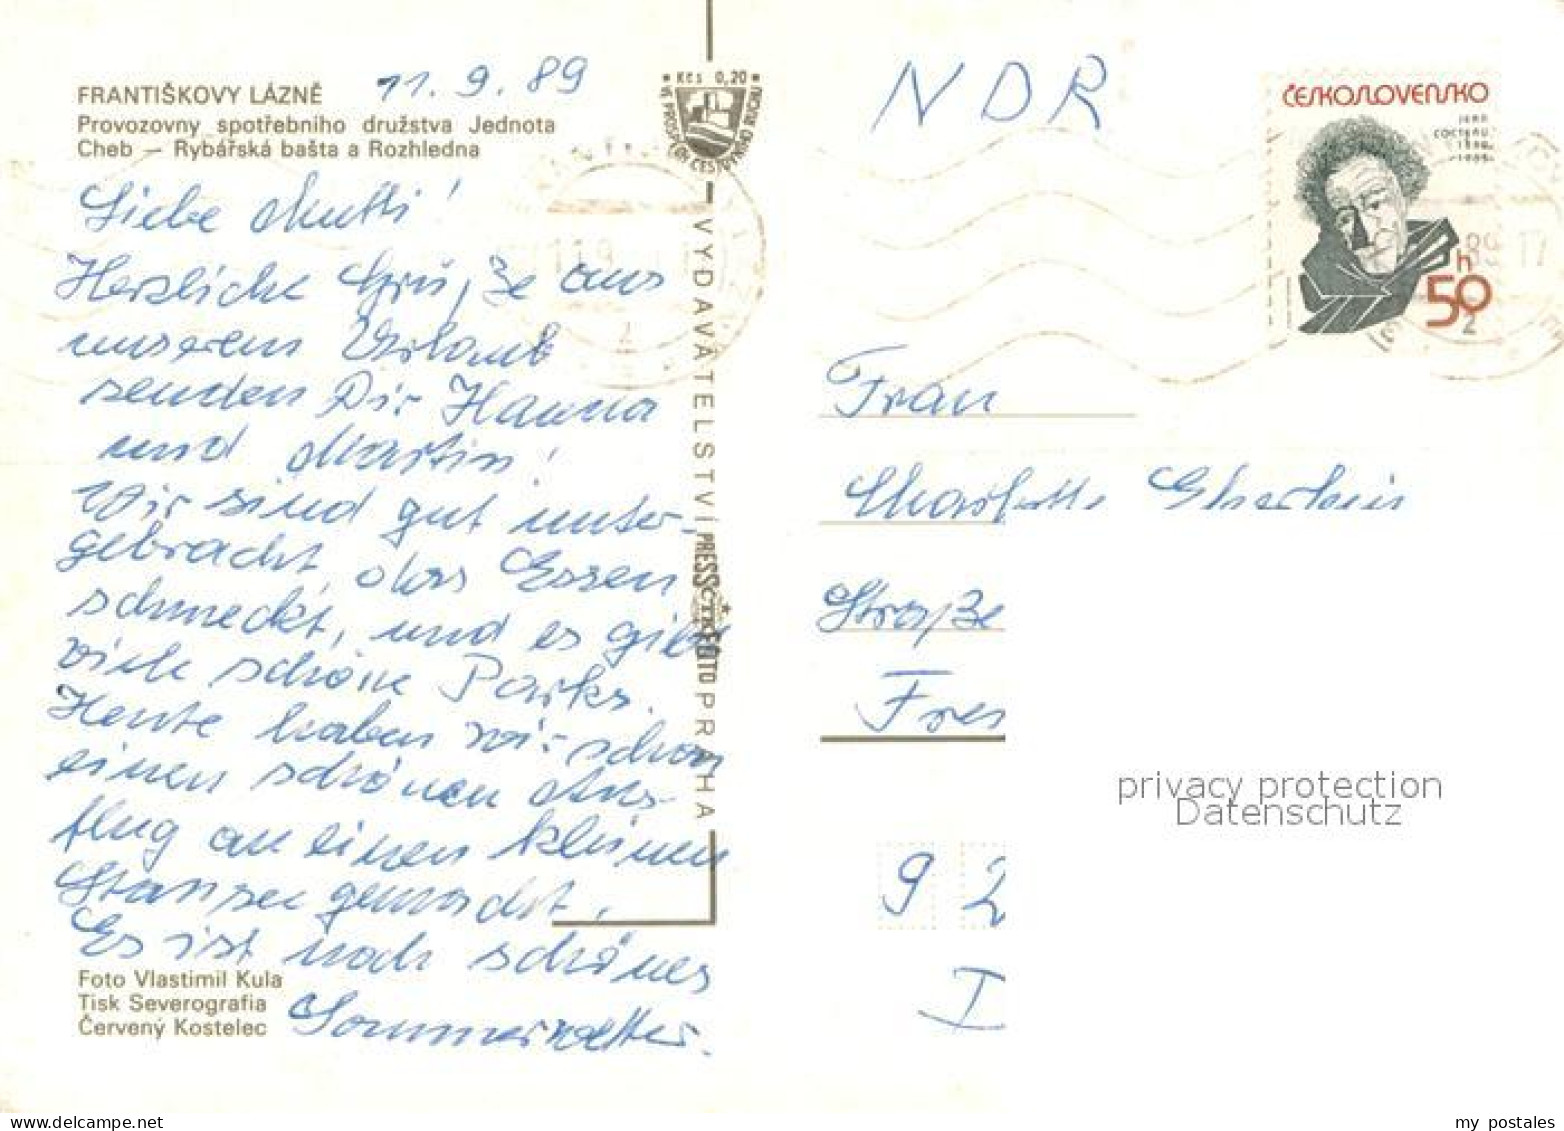 FRANTIŠKOVY LÁZNĚ
11. 9. 89
Provozovny spotřebního družstva Jednota
Cheb — Rybářská bašta a Rozhledna
Liebe Mutti!
Herzliche Grüße aus
unserem Urlaub
senden Dir Hanna
und Martin!
Wir sind gut unter-
gebracht, das Essen
schmeckt, und es gibt
viele schöne Parks.
Heute haben wir schon
einen schönen Aus-
flug an einen kleinen
Stausee gemacht.
Es ist noch schönes
Sommerwetter.
Foto Vlastimil Kula
Tisk Severografia
Červený Kostelec
Kčs 0,20
VYDAVATELSTVÍ PRESSFOTO PRAHA
NDR
ČESKOSLOVENSKO
JEAN
COCTEAU
1889
50 h
11.9
89 17
2
2
Frau
Charlotte
Straße
Fres
9 2
I
privacy protection
Datenschutz
my postales